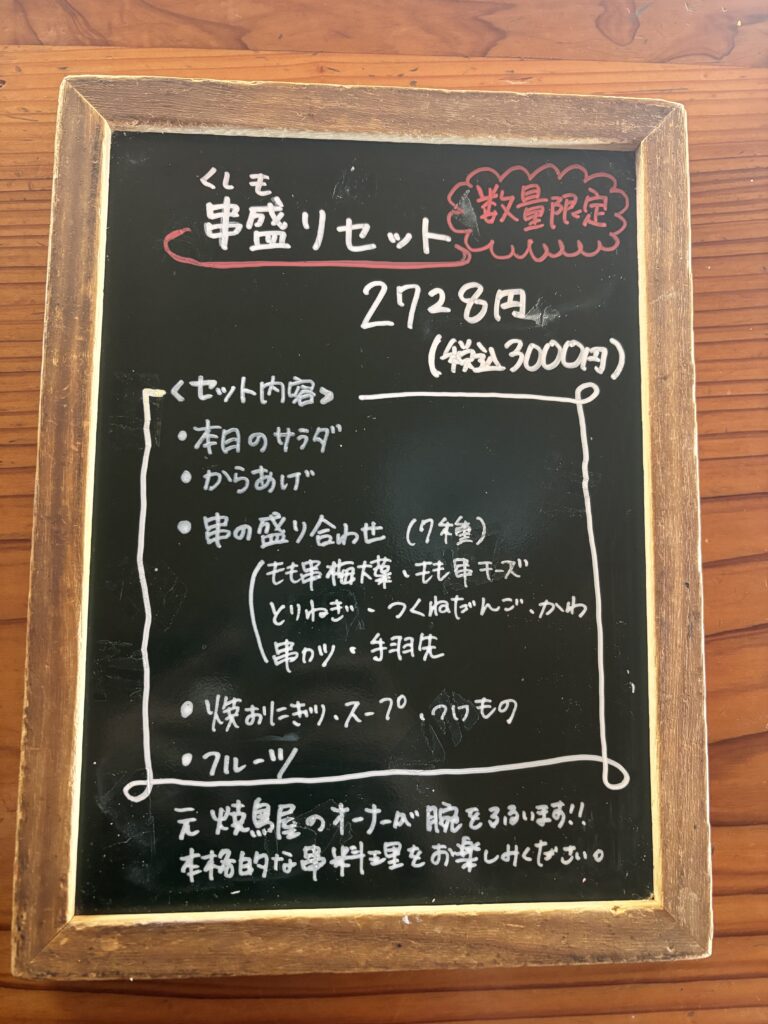 くしモ
串盛りセット
数量限定
2728円
(税込3000円)
<セット内容>
・本日のサラダ
・からあげ
・串の盛り合わせ (7種)
もも串梅大葉・もも串チーズ
とりねぎ・つくねだんご・かわ
串カツ・手羽先
・焼おにぎり、スープ、つけもの
・フルーツ
元 焼鳥屋のオーナーが腕をふるいます!!
本格的な串料理をお楽しみください。